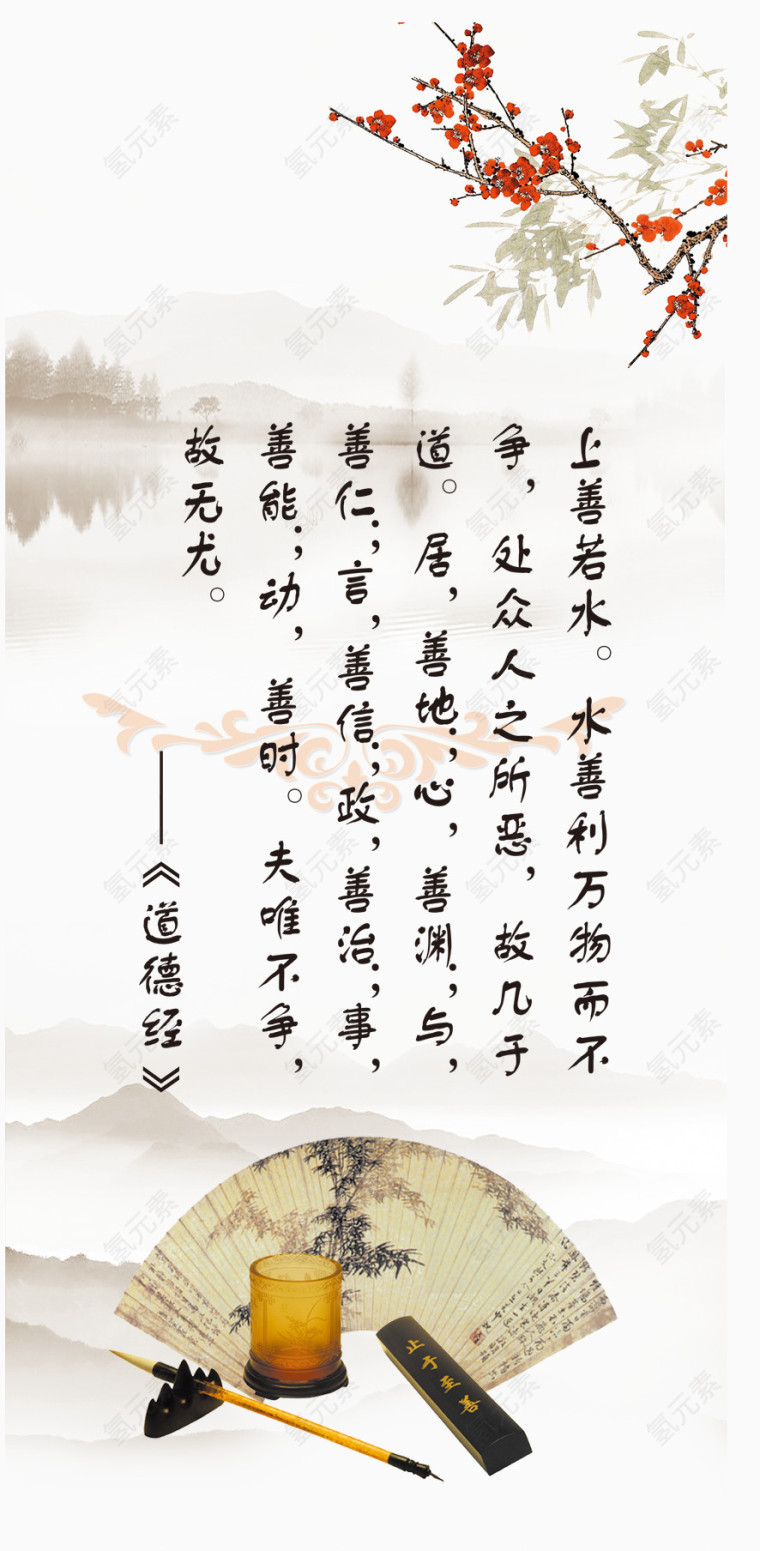 上善若水。水善利万物而不
争，处众人之所恶，故几于
道。居，善地；心，善渊；与，
善仁；言，善信；政，善治；事，
善能；动，善时。夫唯不争，
故无尤。
——《道德经》
止于至善
氢元素